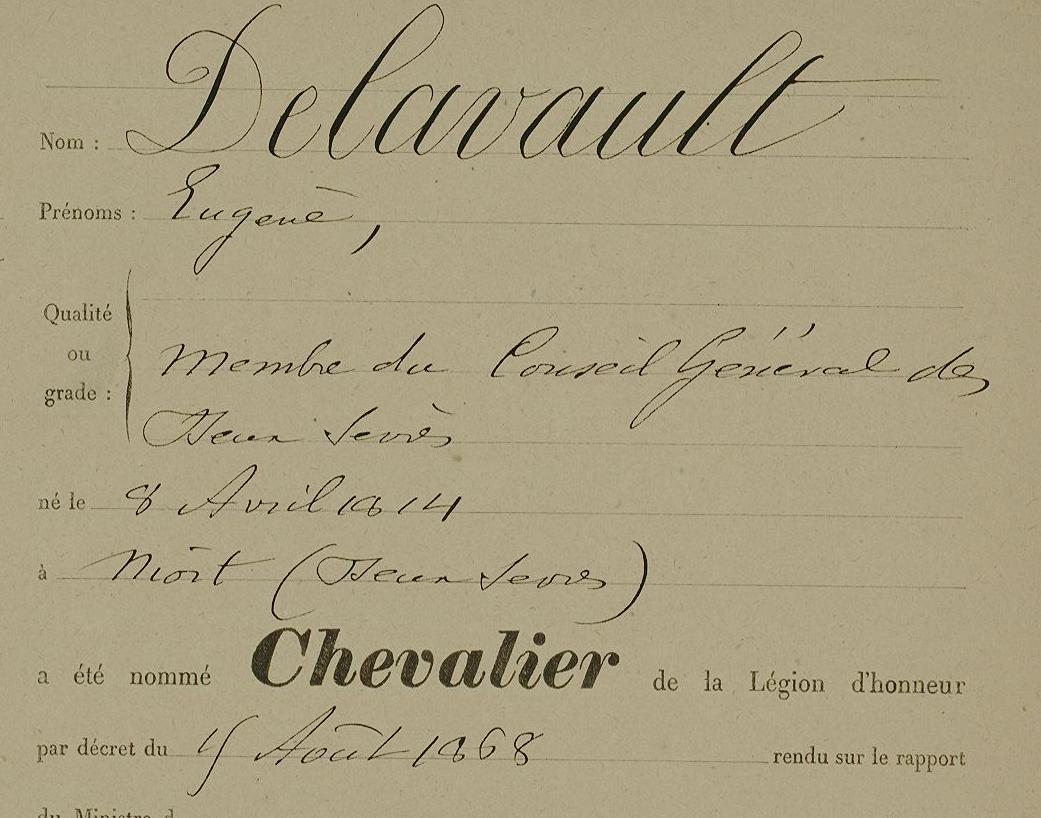 Nom : Delavault
Prénoms : Eugène,
Qualité ou grade : Membre du Conseil Général des
Deux Sèvres
né le 8 Avril 1814
à Niort (Deux Sevres)
a été nommé Chevalier de la Légion d'honneur
par décret du 15 Août 1868 rendu sur le rapport
du Ministre d